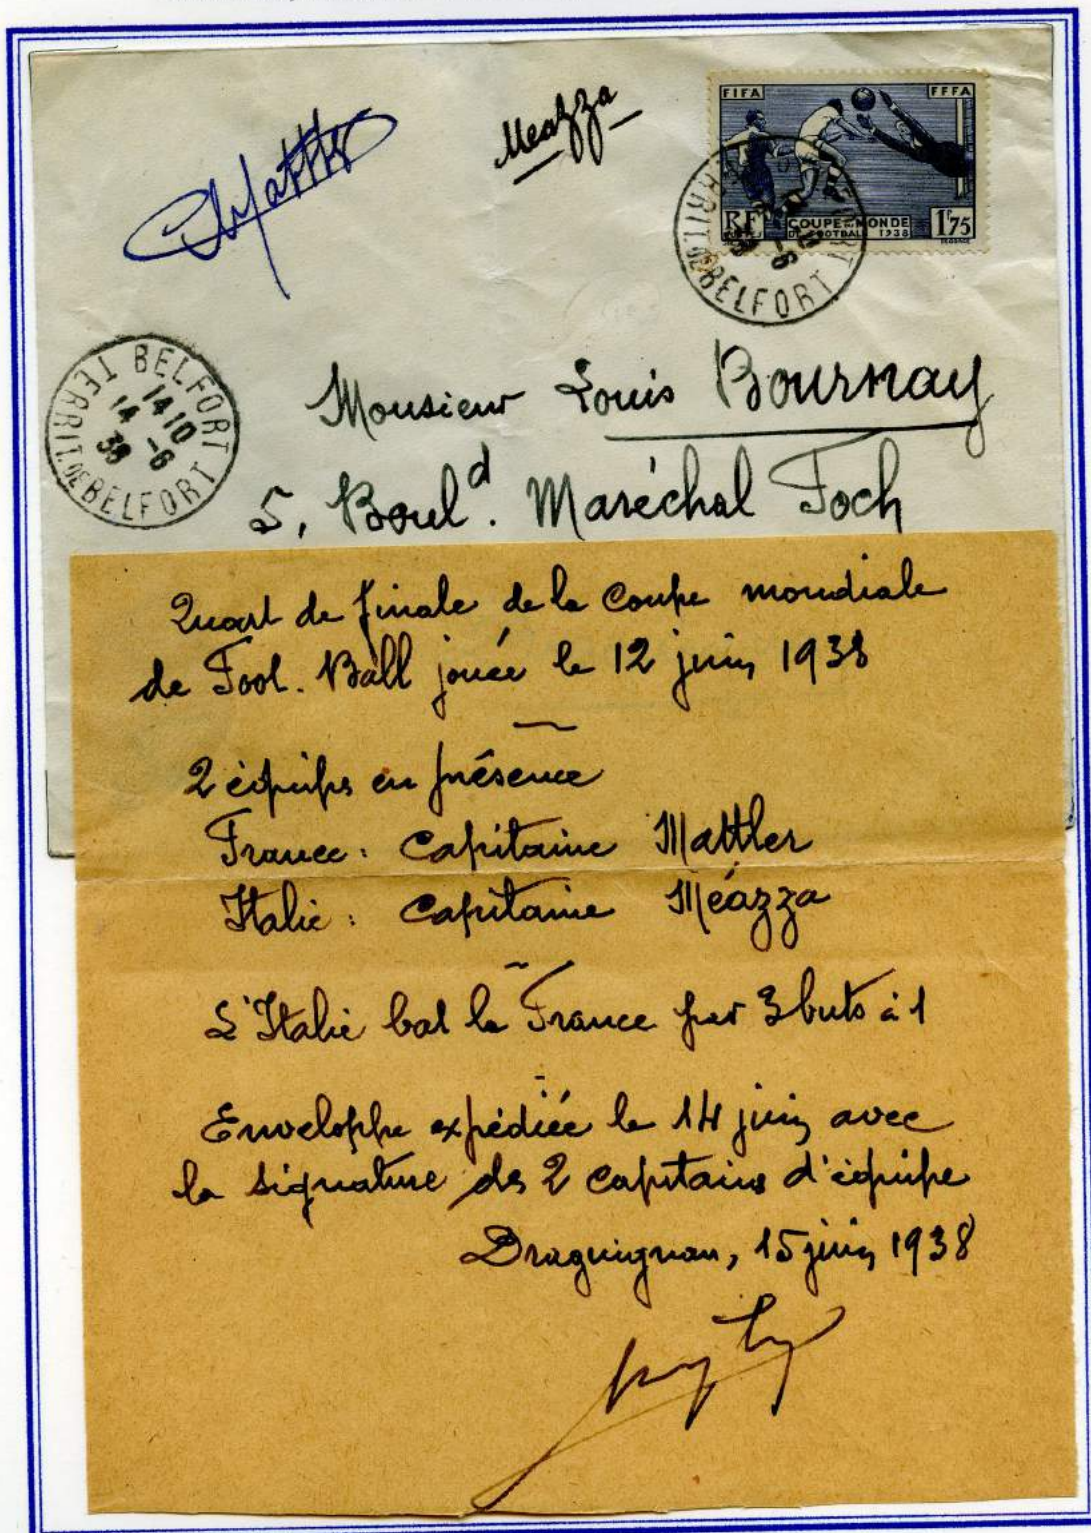 Mattler
Meazza
FIFA
FFFA
RF
POSTES
COUPE DU MONDE
DE FOOTBALL 1938
1F75
TERRIT. DE BELFORT
BELFORT
14 10
14 -6
38
TERRIT. DE BELFORT
Monsieur Louis Bournay
5, Bould. Maréchal Foch
Quart de finale de la Coupe mondiale
de Foot. Ball jouée le 12 juin 1938
2 équipes en présence
France : Capitaine Mattler
Italie : Capitaine Méazza
L'Italie bat la France par 3 buts à 1
Enveloppe expédiée le 14 juin avec
la signature des 2 capitains d'équipe
Draguignan, 15 juin 1938